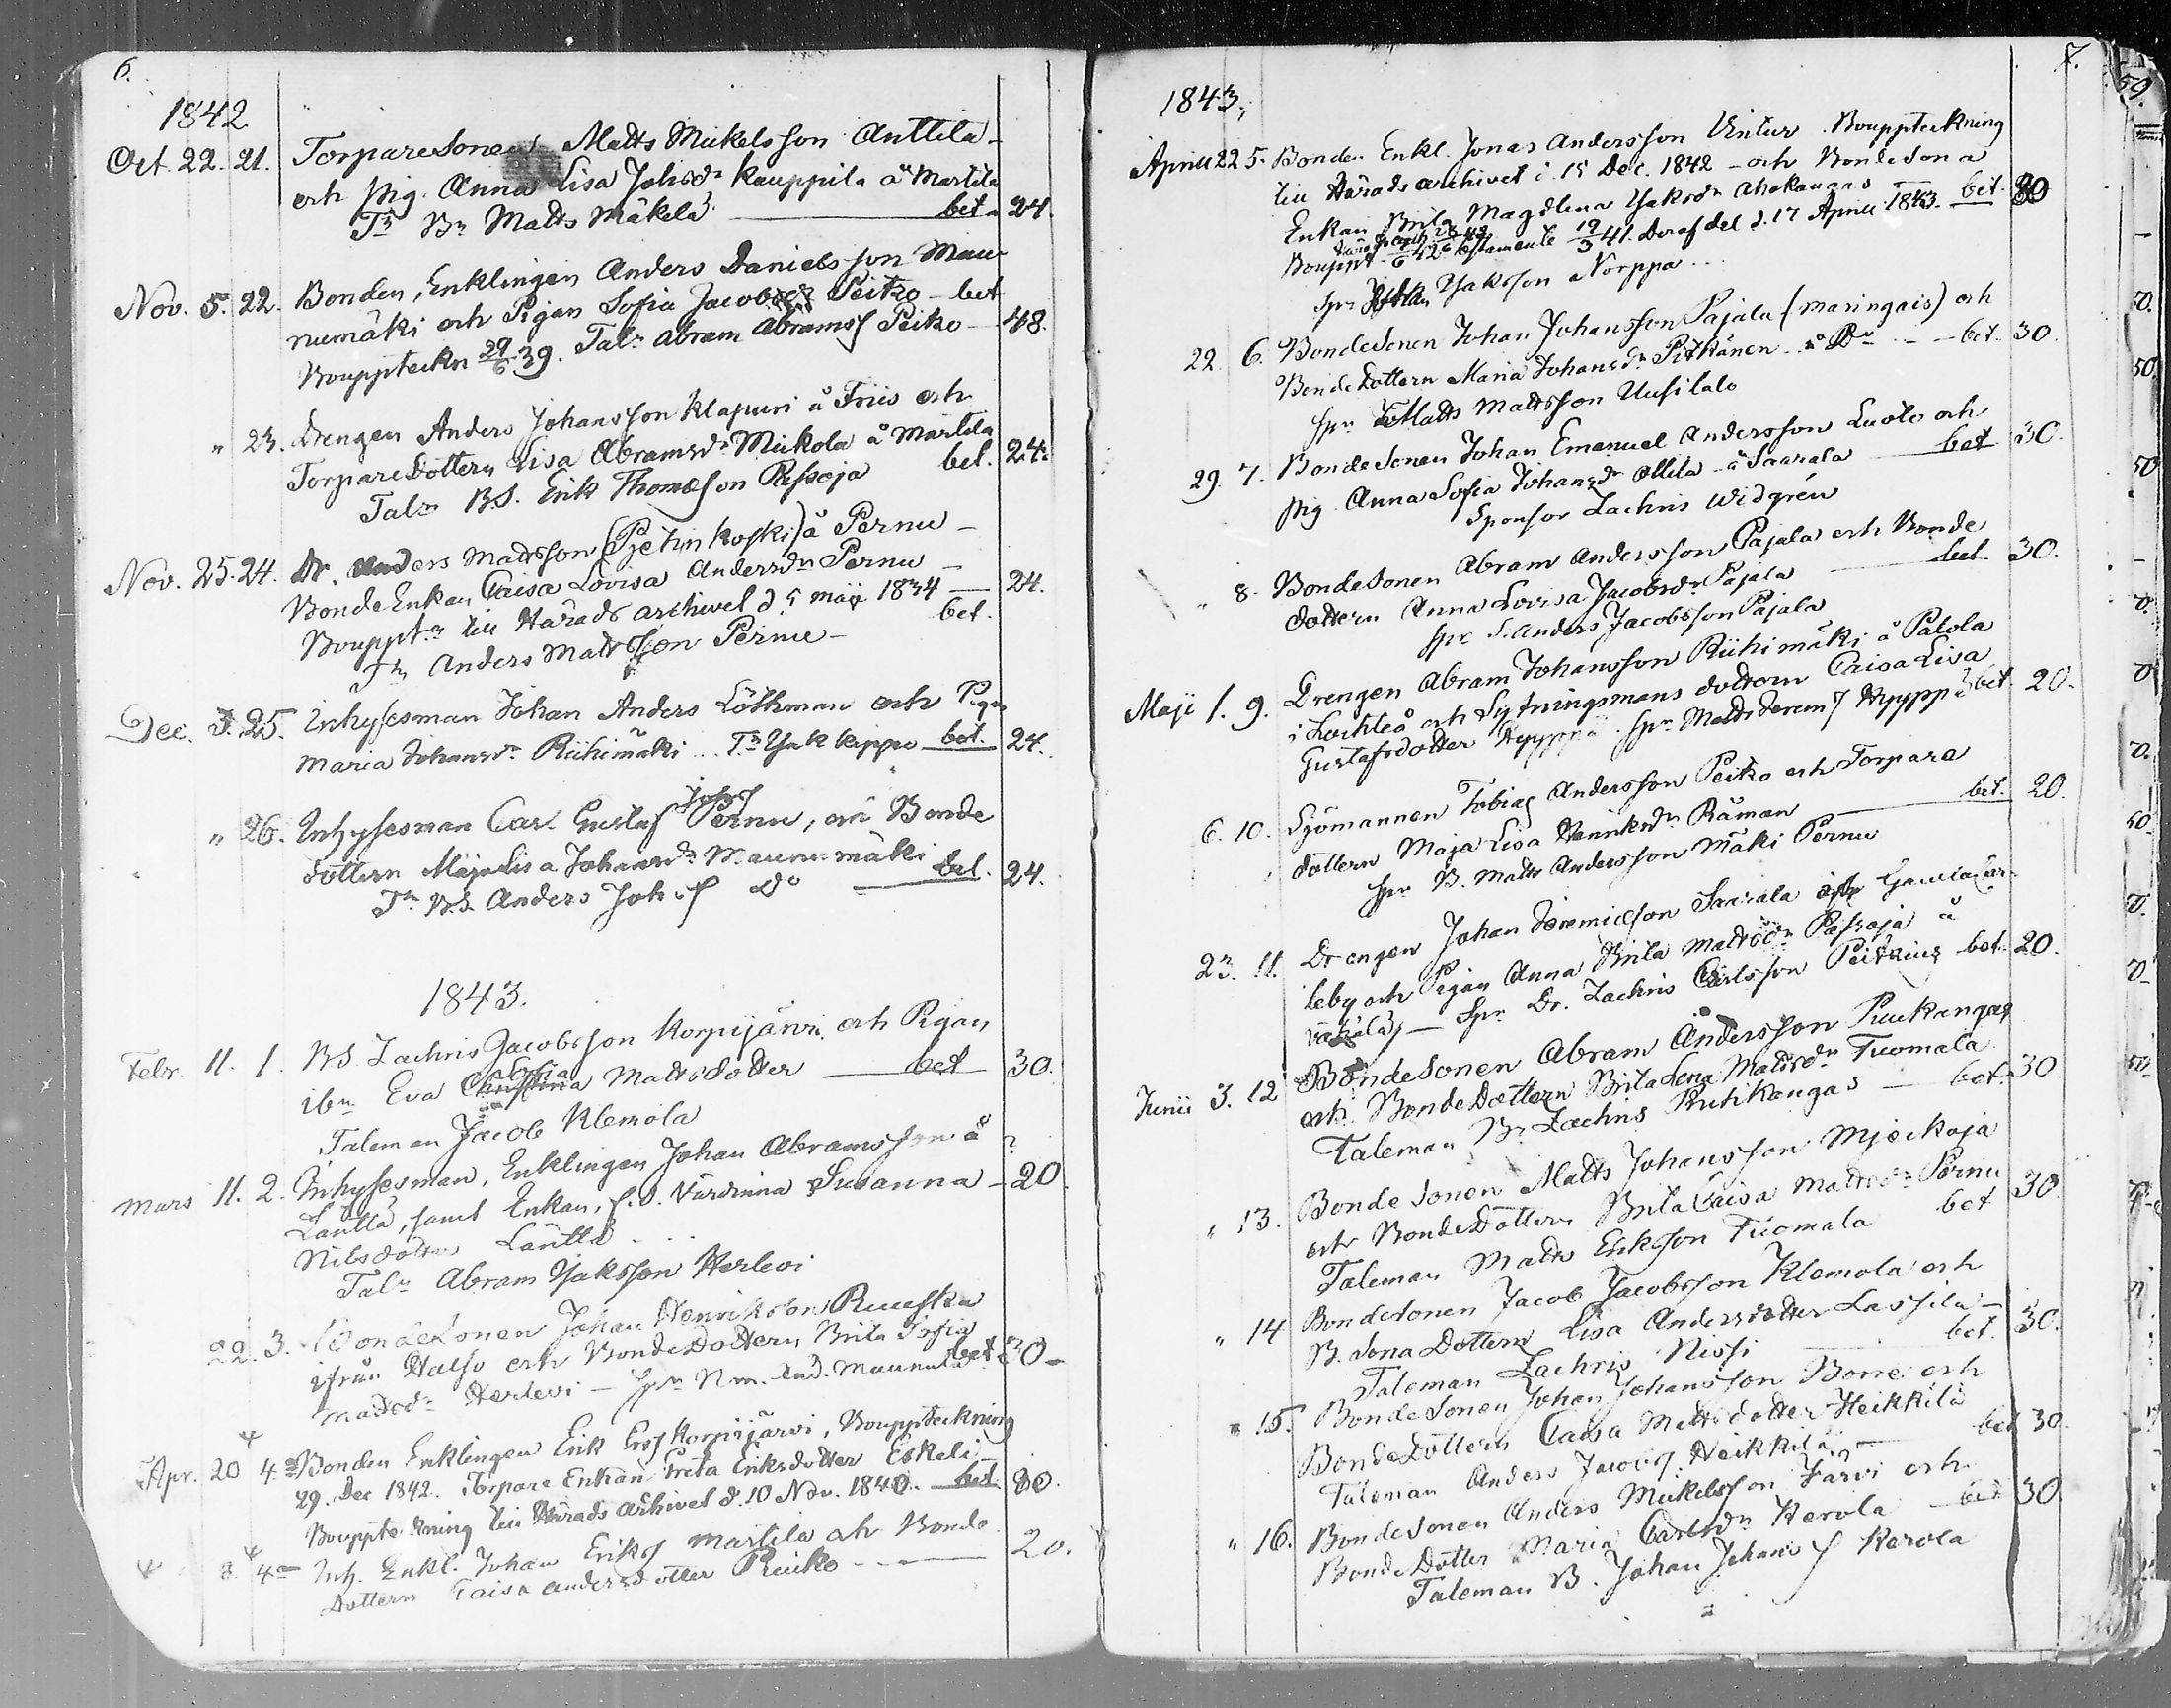 6.
1842
Oct. 22. 21. Torparesonen Matts Mickelsson Anttila -
och pig. Anna Lisa Johsdr Kauppila å Martila
Tn Bn Matts Mäkelä. bet. 24.
Nov. 5. 22. Bonden, Enklingen Anders Danielsson Mau-
numäki och Pigan Sofia Jacobsdr Peitzo - bet
Bouppteckn 29/6 39. Taln Abram Abramss Peitzo - 48.
" 23. Drengen Anders Johansson Klapuri å Friis och
Torpare Dottern Lisa Abramsdr Mickola å Martila
Taln B.S. Erik Thomasson Passoja bet. 24.
Nov. 25. 24. Dr. Anders Mattsson (Pjetinkoski) å Pernu -
Bonde Enkan Caisa Lovisa Andersdn Pernu -
Bouppt. till Härads archivet d 5 maji 1834 — 24.
Tn Anders Mattsson Pernu - bet.
Dec. 3. 25. Inhysesman Johan Anders Löthman och Pigan
Maria Johansdr Riihimäki .. Tn Isak Kippo bet. 24.
" 26. Inhysesman Carl Gustaf Johss Pernu, och Bonde
dottern Maja Lisa Johansdr Maunumäki
Tn B.S. Anders Joh.s do bet. 24.
1843.
Febr. 11. 1. BS. Zachris Jacobsson Korpijärvi och Pigan
ibm Eva Sofia Mattsdotter — bet 30.
Taleman Jacob Klemola
Mars 11. 2. Inhysesman, Enklingen Johan Abramsson å ?
Länttä, samt Enkan, f.d. Värdinna Susanna - 20.
Nilsdotter Länttä ..
Taln Abram Isaksson Herlevi
22. 3. Bondesonen Johan Henriksson Ruuska
ifrån Halso och Bonde Dottern Brita Sofia
Mattsdr Herlevi - Spn Nm. And. Maunula bet 30 -
Apr. 20 4. Bonden Enklingen Erik Erss Korpijärvi, Bouppteckning
29. Dec 1842. Torpare Enkan Greta Eriksdotter Eskeli
Bouppteckning till Härads archivet d. 10 Nov. 1840. - bet. 80.
8. 4 Inh. Enkl. Johan Eriks Martila och Bonde
Dottern Caisa Andersdotter Ruiko - - - 20.
7.
1843,
Aprill 22 5. Bonden Enkl. Jonas Andersson Vintur. Bouppteckning
till Härads archivet d. 15 Dec. 1842 - och Bondesona
Enkan Brita Magdlena Isaksdr Ahokanans — bet. 80
Bouppt. testamente 19/3 41. Deraf del d. 17 Aprill 1843.
Spr Isaksson Norppa ..
22. 6. Bondesonen Johan Johansson Pajala (Maringais) och
Bonde Dottern Maria Johansdr Pitkänen å Do - - bet. 30.
Spn Matts Mattsson Uusitalo
29. 7. Bondesonen Johan Emanuel Andersson Luoto och
pig. Anna Sofia Johansdr Ollila - å Saarala bet 30.
Sponsor Zachris Widgrén
" 8. Bondesonen Abram Andersson Pajala och Bonde
dottern Anna Lovisa Jacobsdr Pajala — bet. 30.
Spr S. Anders Jacobsson Pajala
Maji 1. 9. Drengen Abram Johansson Riihimäki å Palola
i Lochteå och Sytningsmans dottern Caisa Lisa
Gustafsdotter Hyyppä. Spn Matts Jerem.s Hyyppä bet 20.
6. 10. Sjömannen Tobias Andersson Peitzo och Torpare
dottern Maja Lisa Henriksdr Råman — bet. 20.
Spn B. Matts Andersson Mäki Pernu
23. 11. Drengen Johan Jeremiasson Saarala ifrån Gamlacar-
leby och Pigan Anna Brita Mattsdr Passoja å
— Spn Dr. Zachris Carlsson Peitzius bet. 20.
Junii 3. 12 Bondesonen Abram Andersson Puukangas
och Bonde Dottern Brita Lena Mattsdn Tuomala
Taleman Bn Zachris Rutikangas — bet. 30
" 13. Bonde Sonen Matts Johansson Mjöckoja
och Bonde Dottern Brita Caisa Mattsdr Pernu
Taleman Matts Eriksson Tuomala bet 30.
" 14 Bondesonen Jacob Jacobsson Klemola och
B. Sona Dottern Lisa Andersdotter Lassila -
Taleman Zachris Nissi bet. 30.
" 15. Bondesonen Johan Johansson Borre och
Bonde Dottern Caisa Mattsdotter Heikkilä
Taleman Anders Jacobs Heikkilä. — bet 30.
" 16. Bondesonen Anders Mickelsson Järvi och
Bonde Dotter Maria Carlsdn Kerola — bet 30.
Taleman B. Johan Johans s Kerola
59.